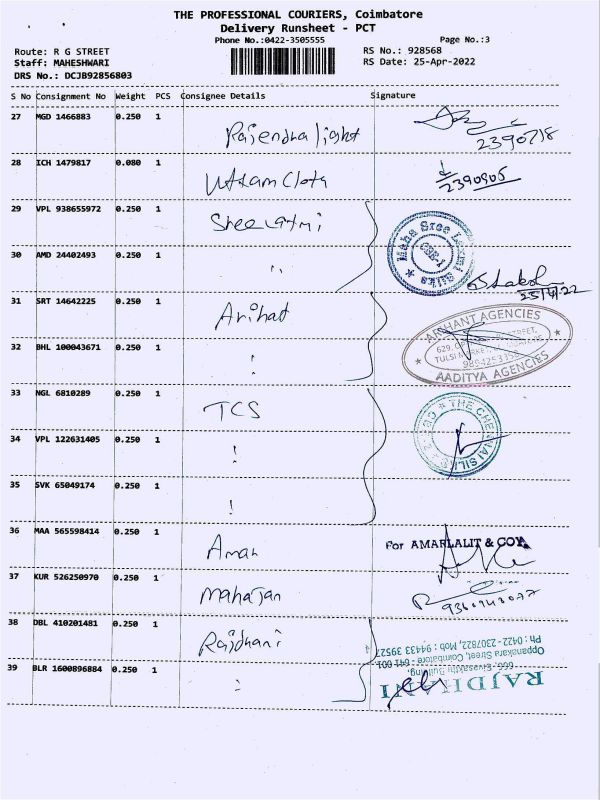 THE PROFESSIONAL COURIERS, Coimbatore
Delivery Runsheet - PCT
Phone No.:0422-3505555
Page No.:3
Route: R G STREET
RS No.: 928568
Staff: MAHESHWARI
RS Date: 25-Apr-2022
DRS No.: DCJB92856803
S No Consignment No Weight PCS Consignee Details Signature
27 MGD 1466883 0.250 1
Rajendra light
2390718
28 ICH 1479817 0.080 1
Uttam Cloth
2390905
29 VPL 938655972 0.250 1
Shee Latmi
Maha Sree Laxmi Silks
CBE-1
30 AMD 24402493 0.250 1
"
25/4/22
31 SRT 14642225 0.250 1
Arihat
ARIHANT AGENCIES
STREET,
TULSI MARKET,
AADITYA AGENCIES
32 BHL 100043671 0.250 1
33 NGL 6810289 0.250 1
TCS
THE CHENNAI SILKS
34 VPL 122631405 0.250 1
35 SVK 65049174 0.250 1
36 MAA 565598414 0.250 1
Aman
For AMARLALIT & CO
37 KUR 526250970 0.250 1
Mahajan
38 DBL 410201481 0.250 1
Rajdhani
39 BLR 1600896884 0.250 1
RAJDHANI
Building,
Oppanakara Street, Coimbatore - 641 001
Ph : 0422 - 2307822, Mob : 94433 39527